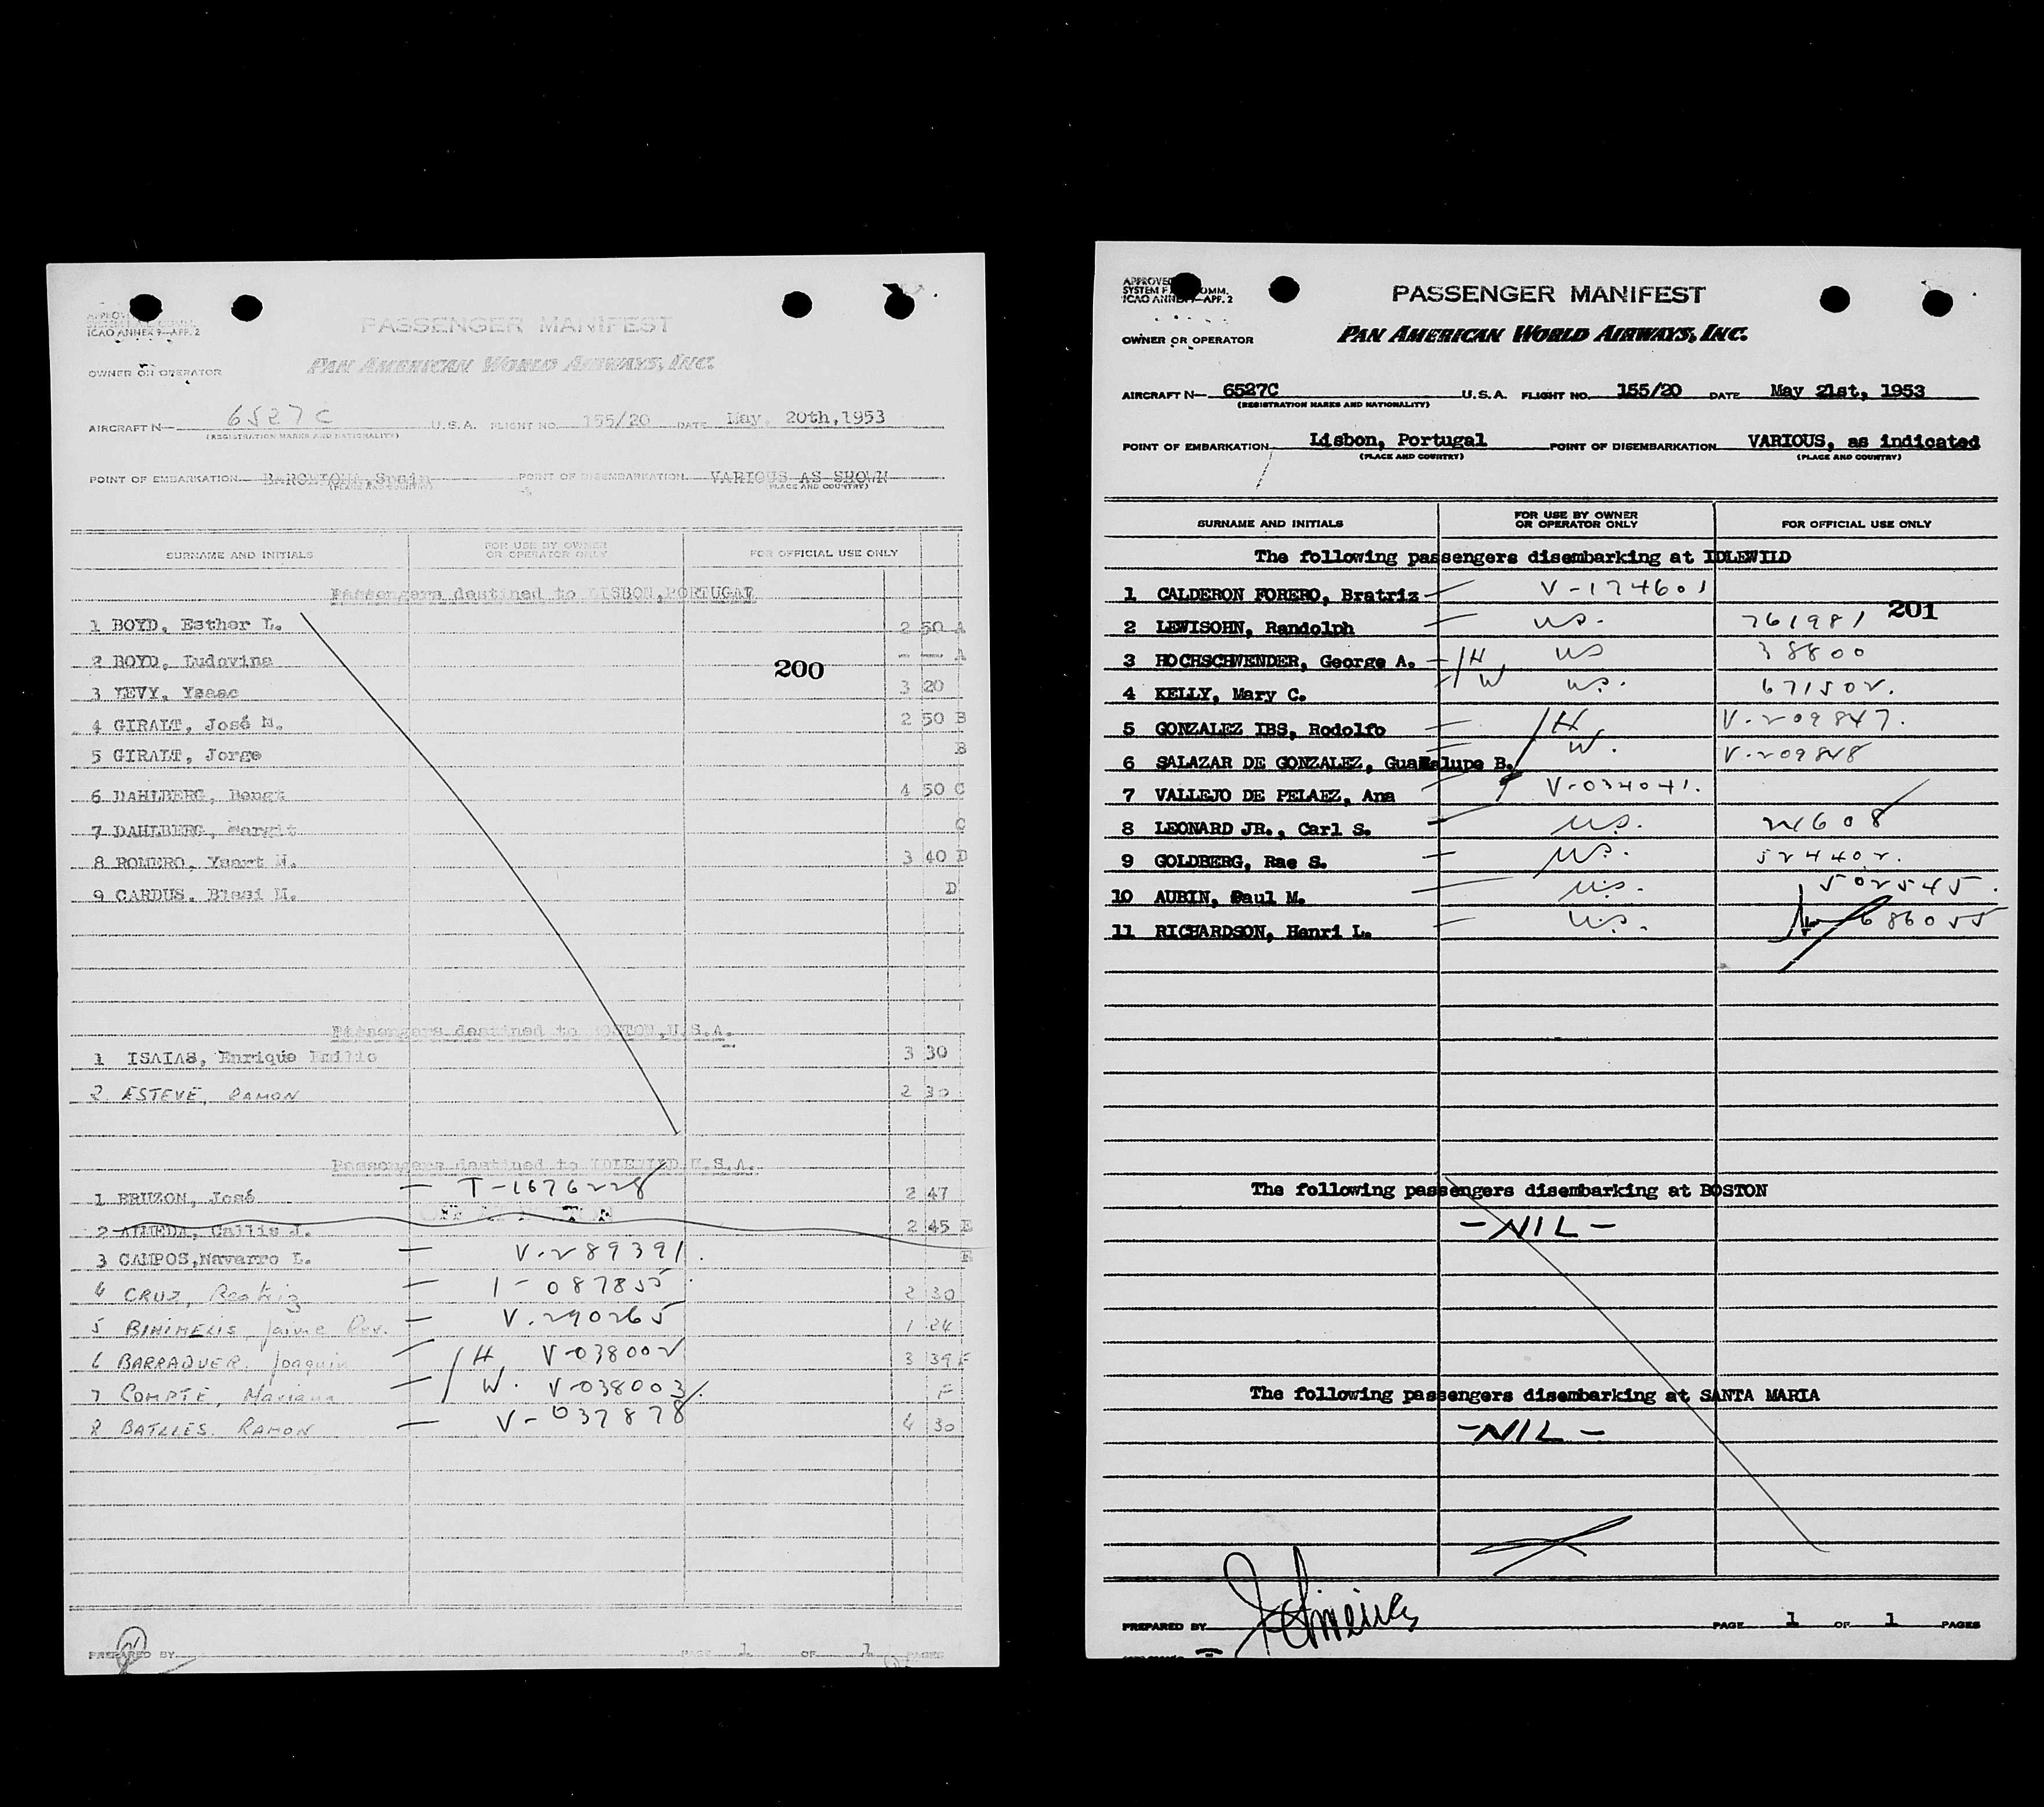 PASSENGER MANIFEST
ICAO ANNEX 9—APP. 2
PAN AMERICAN WORLD AIRWAYS, INC.
OWNER OR OPERATOR
AIRCRAFT N— 6527C U.S.A. FLIGHT NO. 155/20 DATE May, 20th,1953
(REGISTRATION MARKS AND NATIONALITY)
POINT OF EMBARKATION BARCELONA,Spain POINT OF DISEMBARKATION VARIOUS AS SHOWN
(PLACE AND COUNTRY) (PLACE AND COUNTRY)
SURNAME AND INITIALS FOR USE BY OWNER OR OPERATOR ONLY FOR OFFICIAL USE ONLY
Passengers destined to LISBON,PORTUGAL
1 BOYD, Esther L. 2 50 A
2 BOYD, Ludovina — — A
200
3 LEVY, Ysaac 3 20
4 GIRALT, José M. 2 50 B
5 GIRALT, Jorge B
6 DAHLBERG, Bengt 4 50 C
7 DAHLBERG, Margit C
8 ROMERO, Ysart N. 3 40 D
9 CARDUS, Blasi M. D
Passengers destined to BOSTON,U.S.A.
1 ISAIAS, Enrique Emilio 3 30
2 ESTEVE, RAMON 2 30
Passengers destined to IDLEWILD U.S.A.
1 BRUZON, José — T-1676228 2 47
OFF AT BOSTON
2 ALMEDA, Callis J. 2 45 E
3 CAMPOS,Navarro L. — V-289391. E
4 CRUZ, Beatriz — 1-087855. 2 30
5 BINIMELIS, Jaime Rev. — V.290265 1 24
6 BARRAQUER, Joaquin — H. V-038002 3 39 F
7 COMPTE, Mariana — W. V-038003. F
8 BATLLES, RAMON — V-037878 4 30
PREPARED BY PAGE 1 OF 1 PAGES
APPROVED
SYSTEM F COMM.
ICAO ANNEX 9—APP. 2
PASSENGER MANIFEST
PAN AMERICAN WORLD AIRWAYS, INC.
OWNER OR OPERATOR
AIRCRAFT N— 6527C U.S.A. FLIGHT NO. 155/20 DATE May 21st, 1953
(REGISTRATION MARKS AND NATIONALITY)
POINT OF EMBARKATION Lisbon, Portugal POINT OF DISEMBARKATION VARIOUS, as indicated
(PLACE AND COUNTRY) (PLACE AND COUNTRY)
SURNAME AND INITIALS FOR USE BY OWNER OR OPERATOR ONLY FOR OFFICIAL USE ONLY
The following passengers disembarking at IDLEWILD
1 CALDERON FORERO, Bratriz — V-174601
201
2 LEWISOHN, Randolph — US. 761981
3 HOCHSCHWENDER, George A. — H US 38800
4 KELLY, Mary C. — W US. 671502.
5 GONZALEZ IBS, Rodolfo — H V-209847.
6 SALAZAR DE GONZALEZ, Guadalupe B. — W. V-209848
7 VALLEJO DE PELAEZ, Ana — V-034041.
8 LEONARD JR., Carl S. — U.S. 21608
9 GOLDBERG, Rae S. — U.S. 524402.
10 AUBIN, Paul M. — U.S. 502545.
11 RICHARDSON, Henri L. — U.S. 686055
The following passengers disembarking at BOSTON
-NIL-
The following passengers disembarking at SANTA MARIA
-NIL-
PREPARED BY PAGE 1 OF 1 PAGES